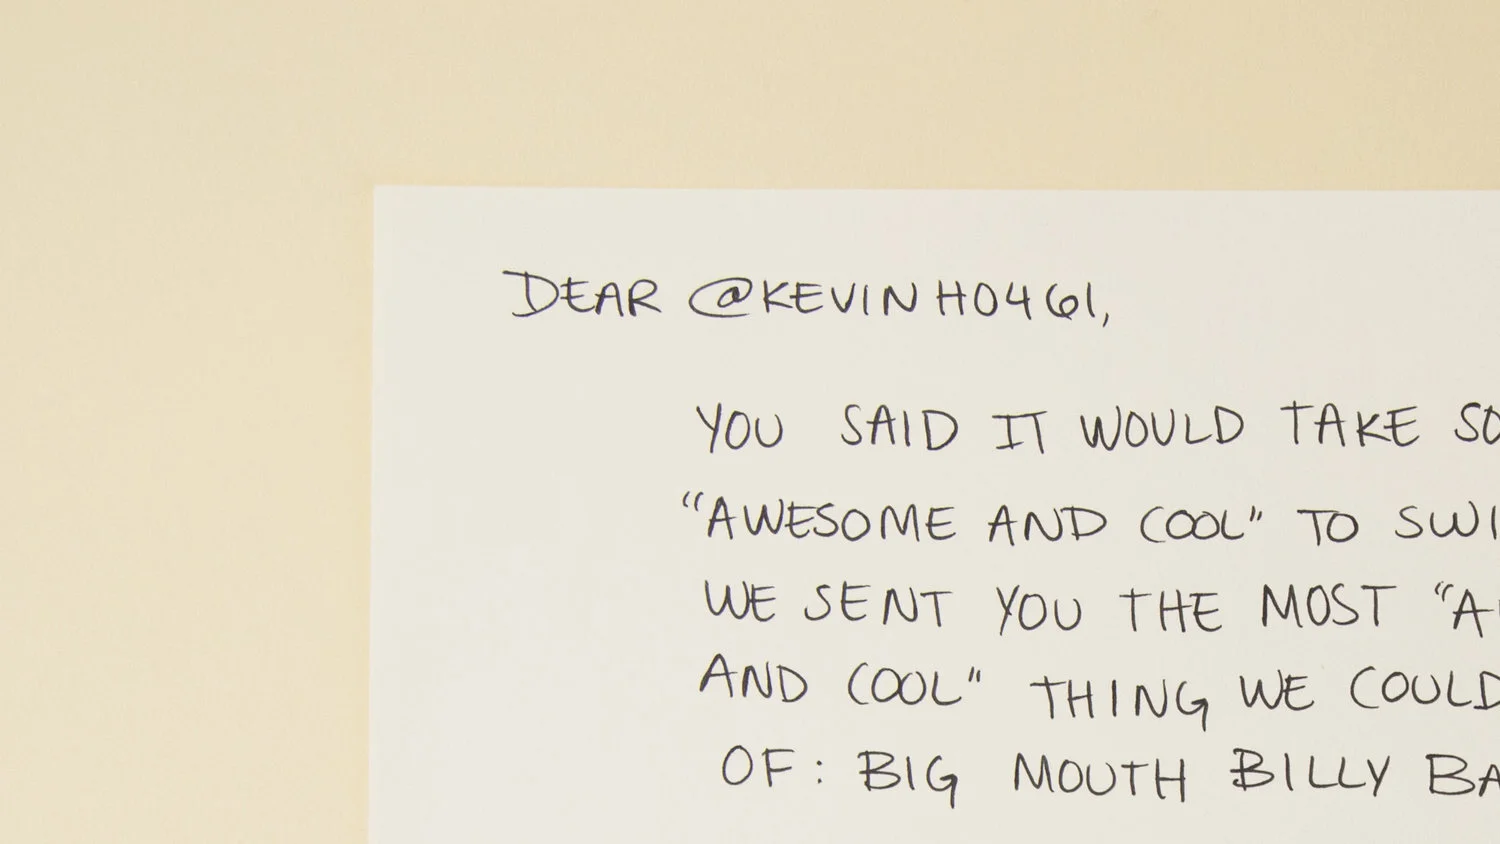 DEAR @KEVINH0461,
YOU SAID IT WOULD TAKE SO
"AWESOME AND COOL" TO SWI
WE SENT YOU THE MOST "A
AND COOL" THING WE COULD
OF: BIG MOUTH BILLY BA